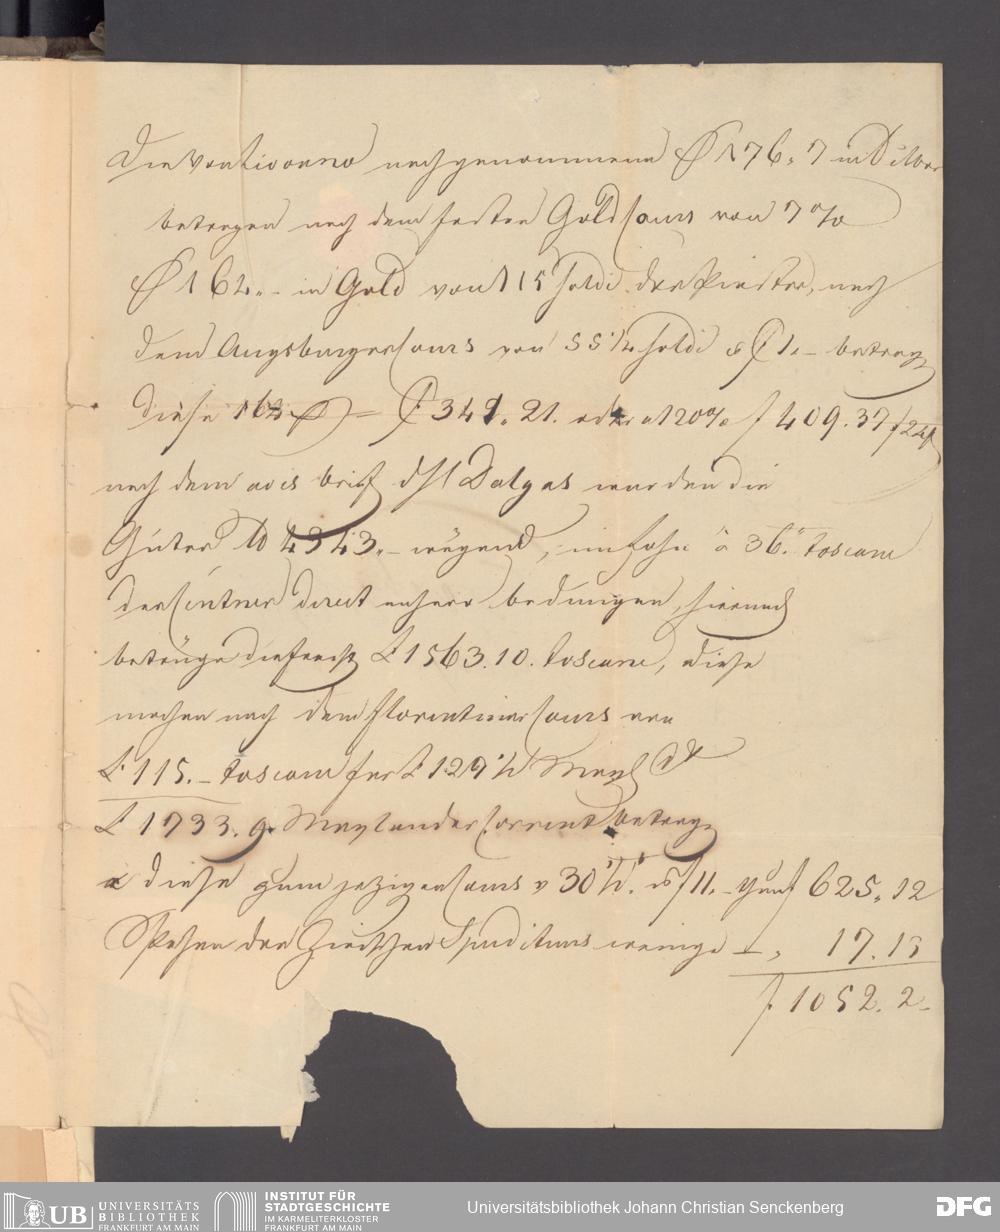 Die von Livorno nachgenommene 176. 7 in Silber
betragen nach dem festen Gold Cours von 7 %
164. - in Gold von 115 Soldi der Piaster, nach
dem Augsburger Cours von 55 1/4 Soldi 1. - betragt
diese 164 = 341. 21. oder a 120% f 409. 37 f 24f
nach dem avis brief Dalgas wurden die
Güter 4343. - wägend, à 36. toscane
der Centner direct anhero bedungen, hiernach
betrüge die Fracht £ 1563. 10. toscane, diese
machen nach dem florentiner Cours von
£ 115. - toscane für £ 127 1/2 Mayl
£ 1733. 9. Maylander Corrent betragt
diese zum jezigen Cours v 30 1/2. f 11. - f 625. 12
Spesen der Spediteurs wenige - " 17. 13
f. 1052. 2 -
UB UNIVERSITÄTS BIBLIOTHEK FRANKFURT AM MAIN
INSTITUT FÜR STADTGESCHICHTE IM KARMELITERKLOSTER FRANKFURT AM MAIN
Universitätsbibliothek Johann Christian Senckenberg
DFG